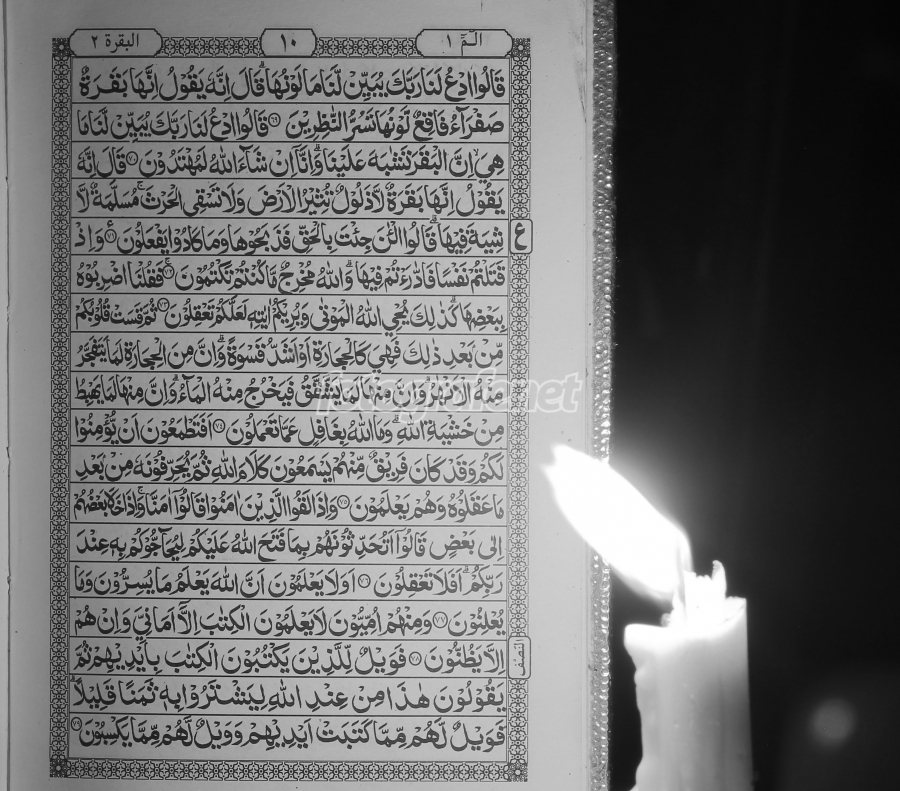 البقرة ٢
١٠
الٓمٓ ١
قَالُوا ادْعُ لَنَا رَبَّكَ يُبَيِّنْ لَّنَا مَا لَوْنُهَا ؕ قَالَ اِنَّهٗ يَقُوْلُ اِنَّهَا بَقَرَةٌ
صَفْرَآءُ فَاقِعٌ لَّوْنُهَا تَسُرُّ النّٰظِرِيْنَ ﴿٦٩﴾ قَالُوا ادْعُ لَنَا رَبَّكَ يُبَيِّنْ لَّنَا مَا
هِيَ ۙ اِنَّ الْبَقَرَ تَشٰبَهَ عَلَيْنَا ؕ وَاِنَّاۤ اِنْ شَآءَ اللّٰهُ لَمُهْتَدُوْنَ ﴿٧٠﴾ قَالَ اِنَّهٗ
يَقُوْلُ اِنَّهَا بَقَرَةٌ لَّا ذَلُوْلٌ تُثِيْرُ الْاَرْضَ وَلَا تَسْقِى الْحَرْثَ ۚ مُسَلَّمَةٌ لَّا
شِيَةَ فِيْهَا ؕ قَالُوا الْـٰٔنَ جِئْتَ بِالْحَقِّ ؕ فَذَبَحُوْهَا وَمَا كَادُوْا يَفْعَلُوْنَ ﴿٧١﴾ وَاِذْ
ع
قَتَلْتُمْ نَفْسًا فَادّٰرَءْتُمْ فِيْهَا ؕ وَاللّٰهُ مُخْرِجٌ مَّا كُنْتُمْ تَكْتُمُوْنَ ﴿٧٢﴾ فَقُلْنَا اضْرِبُوْهُ
بِبَعْضِهَا ؕ كَذٰلِكَ يُحْيِ اللّٰهُ الْمَوْتٰى وَيُرِيْكُمْ اٰيٰتِهٖ لَعَلَّكُمْ تَعْقِلُوْنَ ﴿٧٣﴾ ثُمَّ قَسَتْ قُلُوْبُكُمْ
مِّنْۢ بَعْدِ ذٰلِكَ فَهِيَ كَالْحِجَارَةِ اَوْ اَشَدُّ قَسْوَةً ؕ وَاِنَّ مِنَ الْحِجَارَةِ لَمَا يَتَفَجَّرُ
مِنْهُ الْاَنْهٰرُ ؕ وَاِنَّ مِنْهَا لَمَا يَشَّقَّقُ فَيَخْرُجُ مِنْهُ الْمَآءُ ؕ وَاِنَّ مِنْهَا لَمَا يَهْبِطُ
fotografe.net
مِنْ خَشْيَةِ اللّٰهِ ؕ وَمَا اللّٰهُ بِغَافِلٍ عَمَّا تَعْمَلُوْنَ ﴿٧٤﴾ اَفَتَطْمَعُوْنَ اَنْ يُّؤْمِنُوْا
لَكُمْ وَقَدْ كَانَ فَرِيْقٌ مِّنْهُمْ يَسْمَعُوْنَ كَلَامَ اللّٰهِ ثُمَّ يُحَرِّفُوْنَهٗ مِنْۢ بَعْدِ
مَا عَقَلُوْهُ وَهُمْ يَعْلَمُوْنَ ﴿٧٥﴾ وَاِذَا لَقُوا الَّذِيْنَ اٰمَنُوْا قَالُوْۤا اٰمَنَّا ۚ وَاِذَا خَلَا بَعْضُهُمْ
اِلٰى بَعْضٍ قَالُوْۤا اَتُحَدِّثُوْنَهُمْ بِمَا فَتَحَ اللّٰهُ عَلَيْكُمْ لِيُحَآجُّوْكُمْ بِهٖ عِنْدَ
رَبِّكُمْ ؕ اَفَلَا تَعْقِلُوْنَ ﴿٧٦﴾ اَوَلَا يَعْلَمُوْنَ اَنَّ اللّٰهَ يَعْلَمُ مَا يُسِرُّوْنَ وَمَا
يُعْلِنُوْنَ ﴿٧٧﴾ وَمِنْهُمْ اُمِّيُّوْنَ لَا يَعْلَمُوْنَ الْكِتٰبَ اِلَّاۤ اَمَانِيَّ وَاِنْ هُمْ
اِلَّا يَظُنُّوْنَ ﴿٧٨﴾ فَوَيْلٌ لِّلَّذِيْنَ يَكْتُبُوْنَ الْكِتٰبَ بِاَيْدِيْهِمْ ثُمَّ
النصف
يَقُوْلُوْنَ هٰذَا مِنْ عِنْدِ اللّٰهِ لِيَشْتَرُوْا بِهٖ ثَمَنًا قَلِيْلًا ؕ
فَوَيْلٌ لَّهُمْ مِّمَّا كَتَبَتْ اَيْدِيْهِمْ وَوَيْلٌ لَّهُمْ مِّمَّا يَكْسِبُوْنَ ﴿٧٩﴾